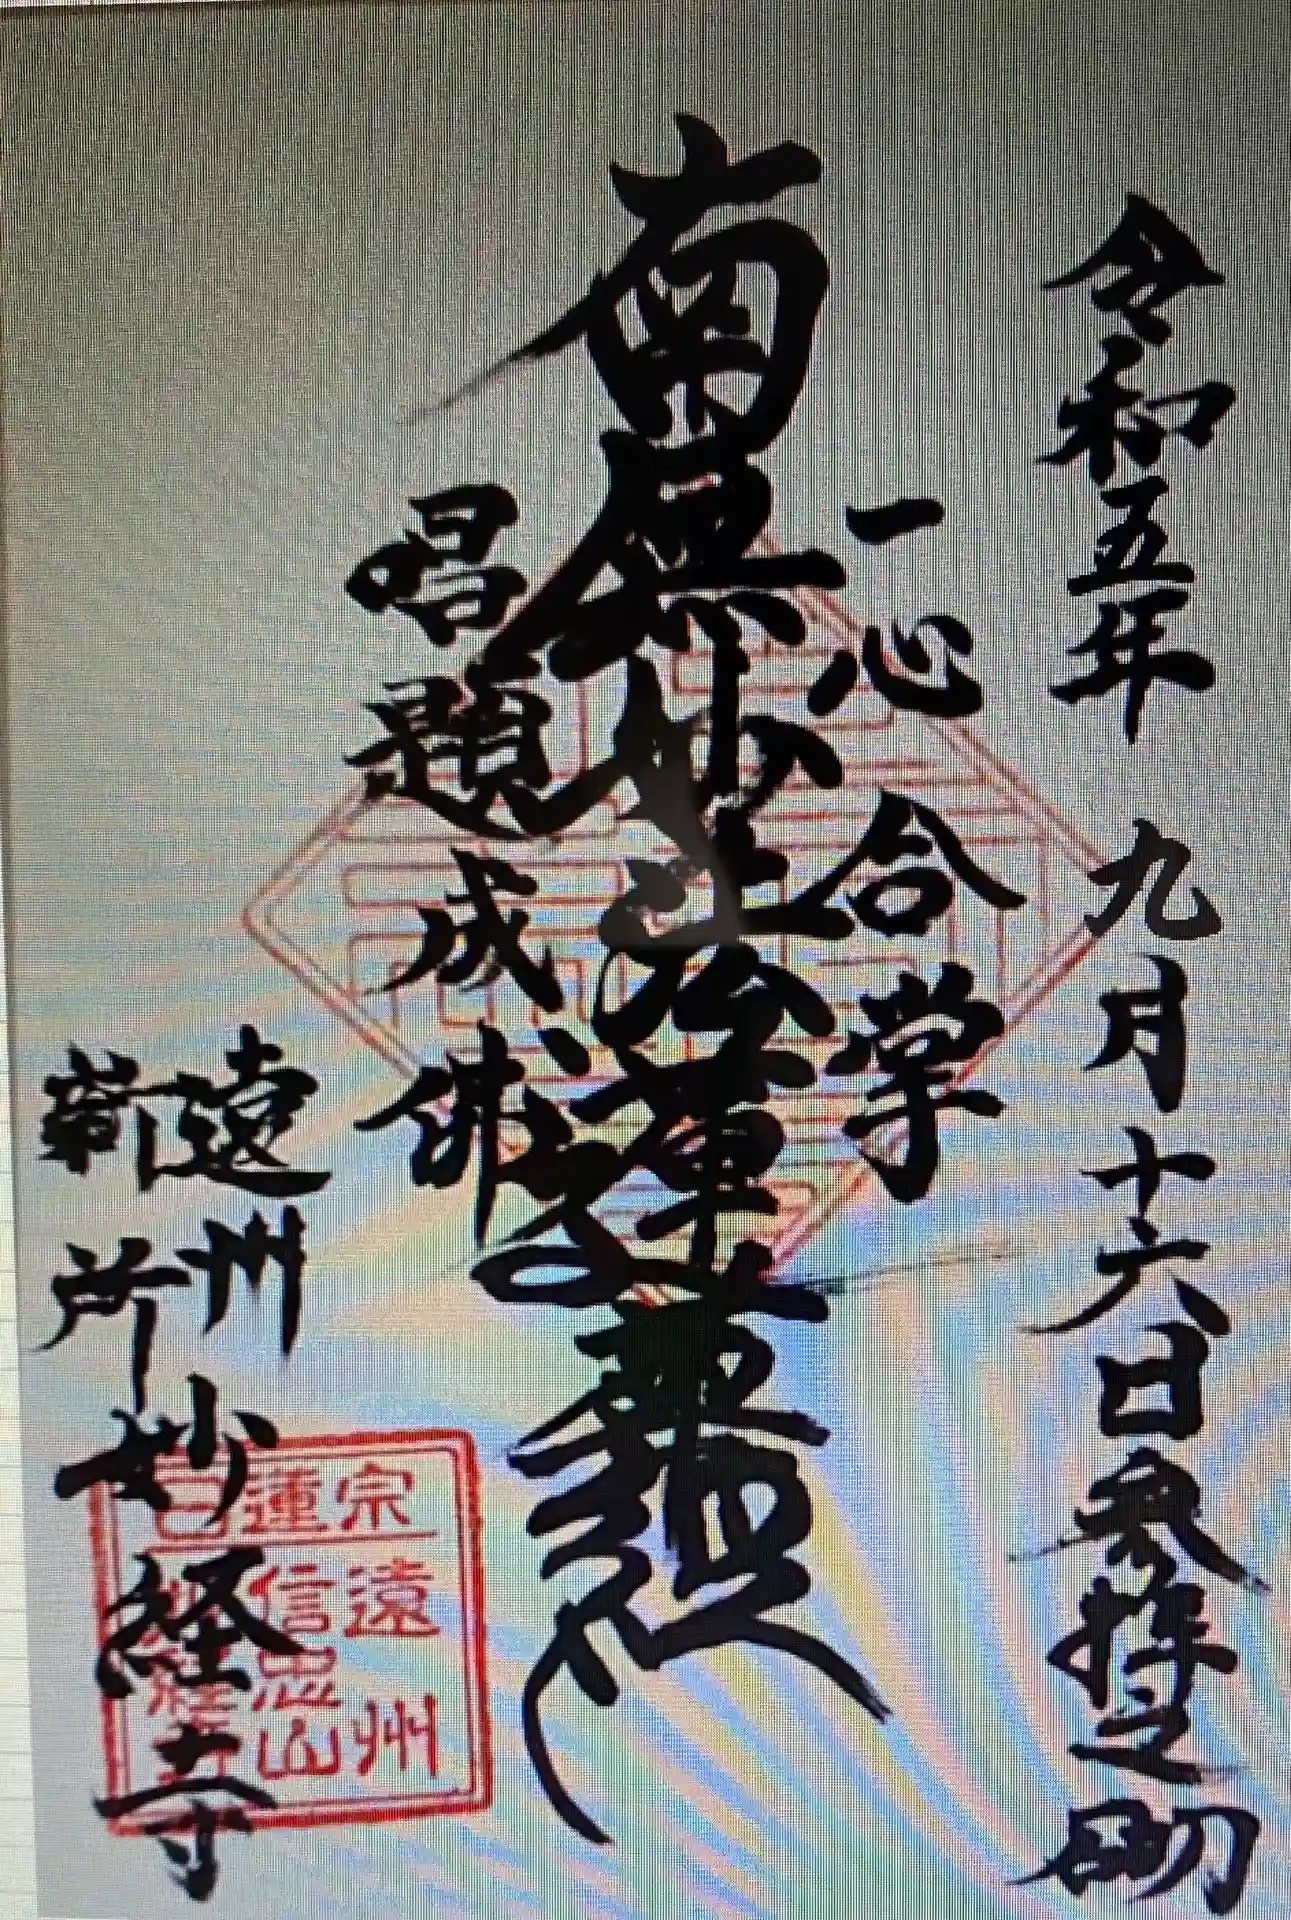 令和五年 九月十六日参拝之砌
一心合掌
南無妙法蓮華経
唱題成佛
遠州
新所妙経寺
日蓮宗
遠州
信忠山